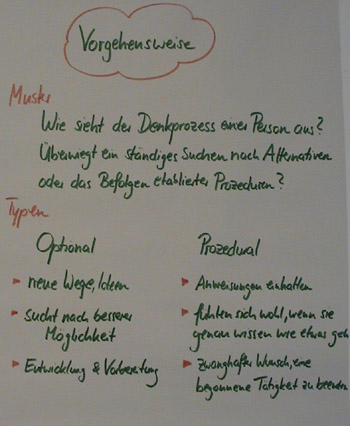 Vorgehensweise
Muster
Wie sieht der Denkprozess einer Person aus?
Überwiegt ein ständiges Suchen nach Alternativen
oder das Befolgen etablierter Prozeduren?
Typen
Optional
neue Wege, Ideen
sucht nach besserer
Möglichkeit
Entwicklung & Vorbereitung
Prozedural
Anweisungen einhalten
fühlen sich wohl, wenn sie
genau wissen wie etwas geh
zwanghafter Wunsch, eine
begonnene Tätigkeit zu beenden